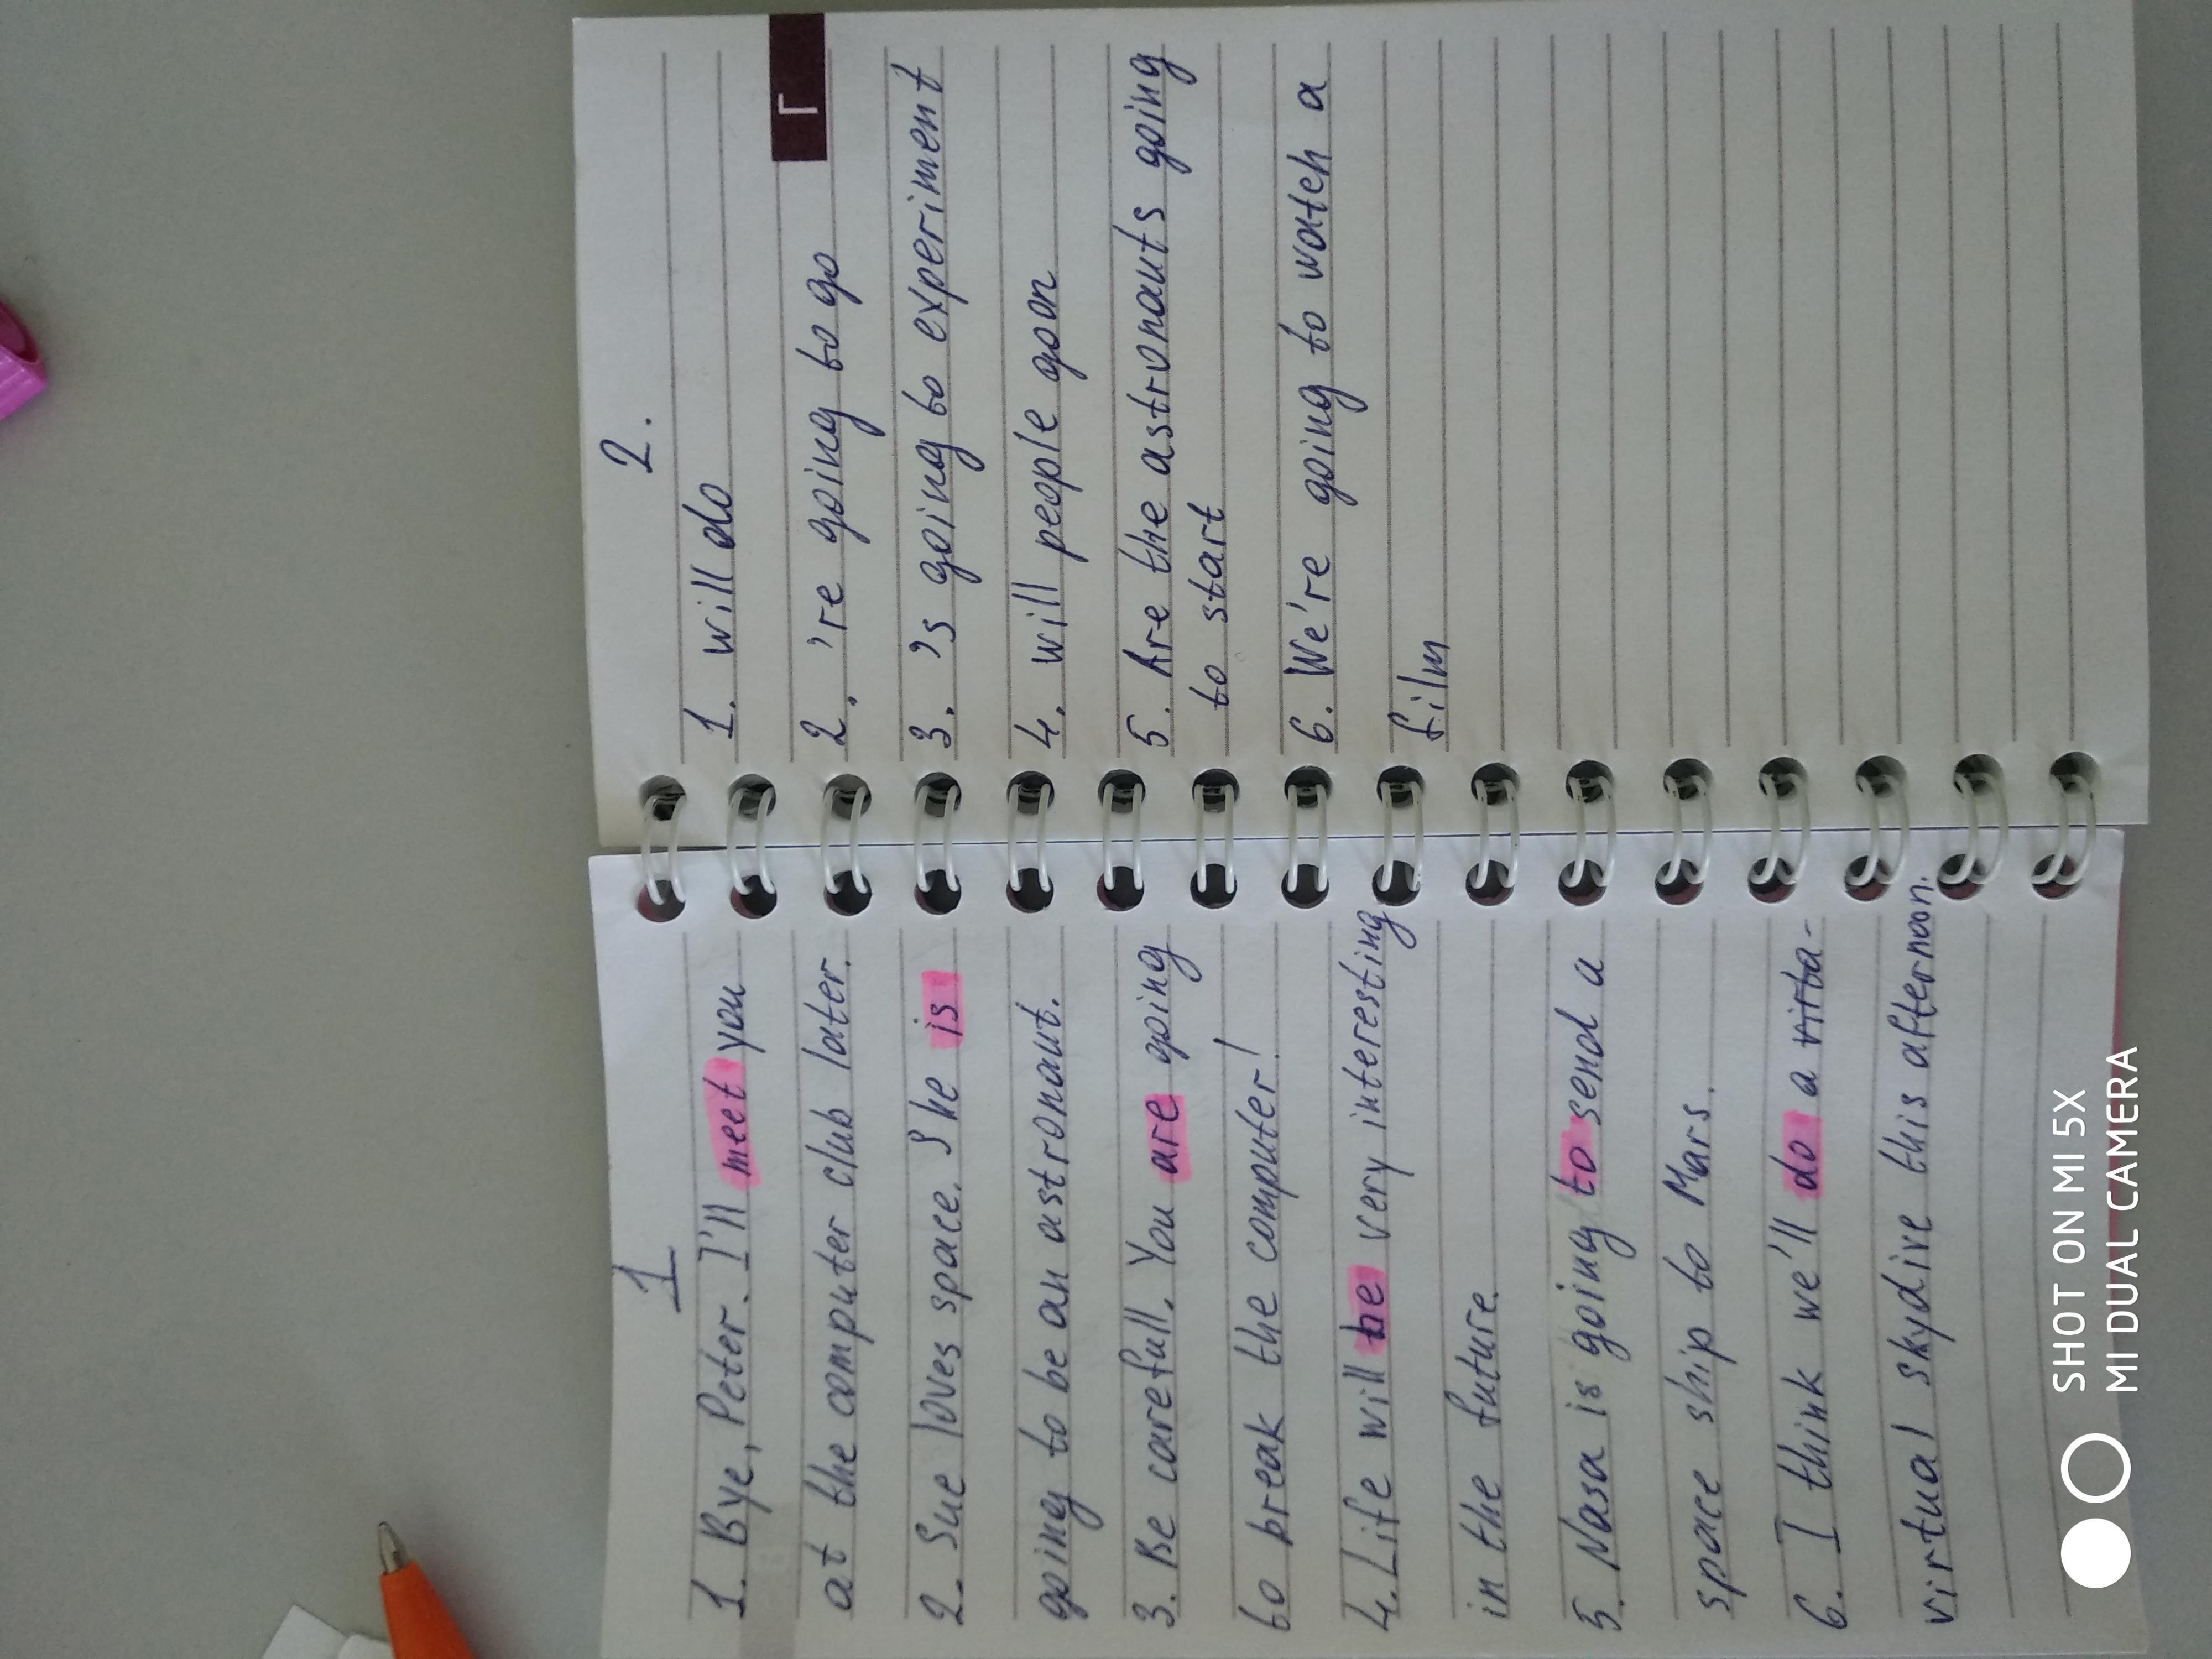 1
1. Bye, Peter. I'll meet you
at the computer club later.
2. Sue loves space. She is
going to be an astronaut.
3. Be carefull. You are going
to break the computer!
4. Life will be very interesting
in the future.
5. Nasa is going to send a
space ship to Mars.
6. I think we'll do a virta-
virtual skydive this afternoon.
2.
1. will do
Г
2. 're going to go
3. 's going to experiment
4. will people goon
5. Are the astronauts going
to start
6. We're going to watch a
film
SHOT ON MI 5X
MI DUAL CAMERA